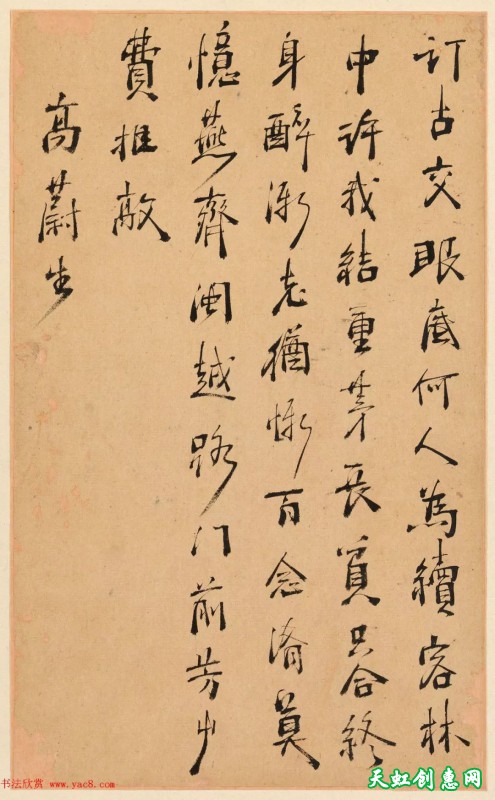 訂古交眼底何人為續容林
中許我結重茅長貧只合終
身醉漸老猶慚百念淆莫
憶燕齊閩越路門前芳草
費推敲
高蔚生
书法欣赏 www.yac8.com
天虹创惠网